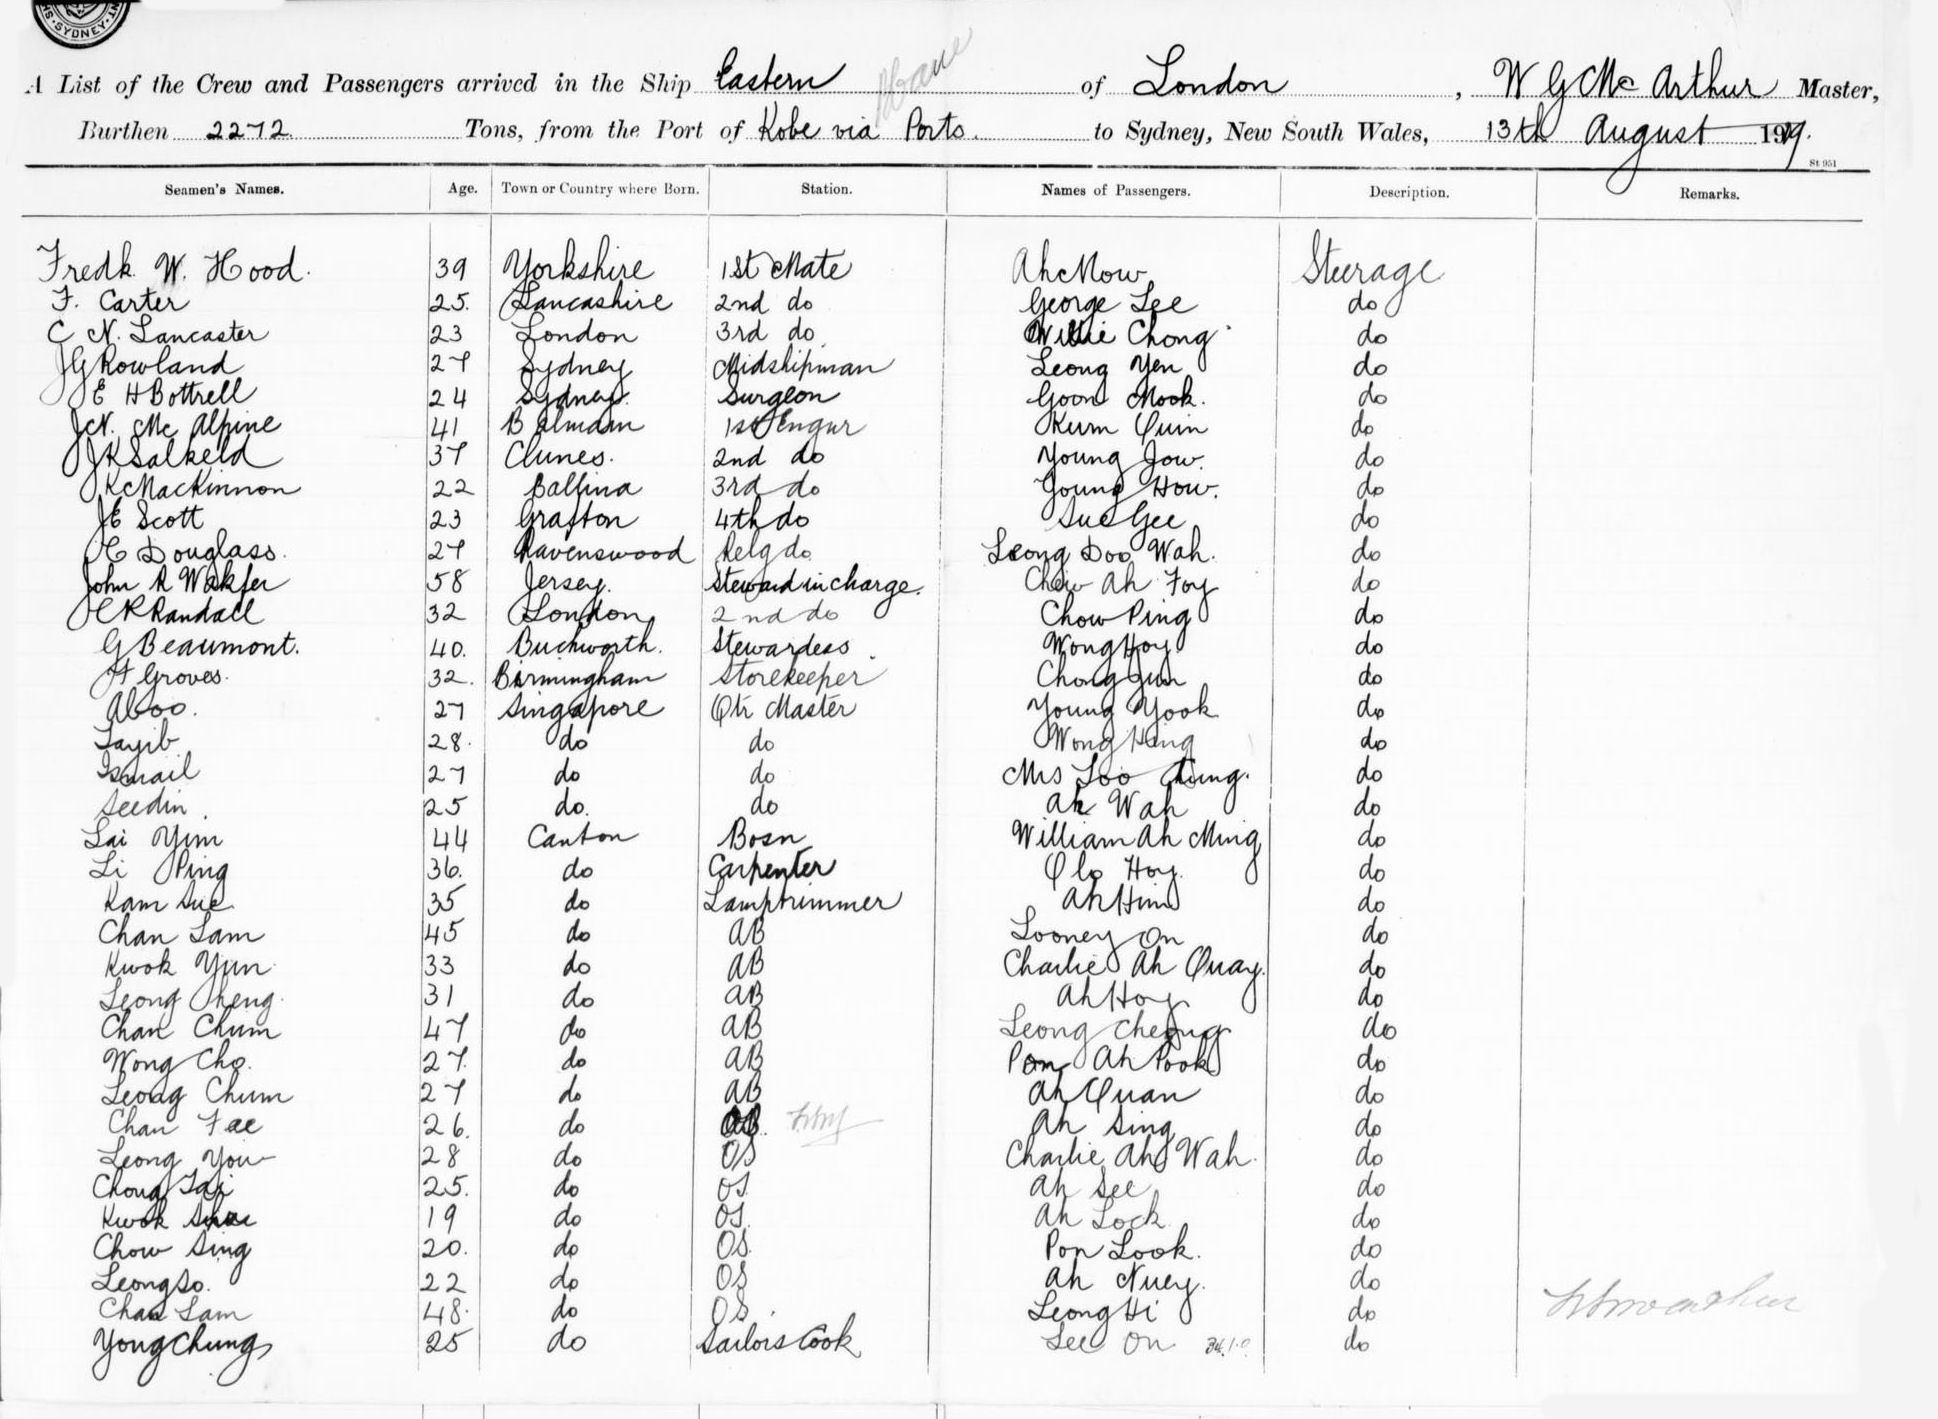 SYDNEY
A List of the Crew and Passengers arrived in the Ship Eastern of London, W G Mc Arthur Master,
Burthen 2272 Tons, from the Port of Kobe via Ports. to Sydney, New South Wales, 13th August 1919.
St 951
Seamen's Names. Age. Town or Country where Born. Station. Names of Passengers. Description. Remarks.
Fredk. W. Hood. 39 Yorkshire 1st Mate Ah Mow Steerage
F. Carter 25. Lancashire 2nd do George Lee do
C N. Lancaster 23 London 3rd do Willie Chong do
J G Rowland 27 Sydney Midshipman Leong Yen do
E H Bottrell 24 Sydney. Surgeon Goon Mook. do
J N. Mc Alpine 41 Balmain 1st Engnr Kum Quin do
J K Salkeld 37 Clunes. 2nd do Young Jow. do
K MacKinnon 22 Ballina 3rd do Young How. do
J E Scott 23 Grafton 4th do Sue Gee do
C Douglass. 27 Ravenswood Relg do Leong Doo Wah. do
John R Wakfer 58 Jersey. Steward in charge. Chew Ah Foy do
C R Randall 32 London 2nd do Chow Ping do
G Beaumont. 40. Buckworth. Stewardess Wong Hoy do
H Groves. 32. Birmingham Storekeeper Chong Jun do
Aboo. 27 Singapore Qtr Master Young Yook do
Tayib 28. do do Wong Hing do
Ismail 27 do do Mrs Loo Chung. do
Seedin. 25 do. do Ah Wah do
Lai Yim 44 Canton Bosn William Ah Ming do
Li Ping 36. do Carpenter Olo Hoy. do
Kam Sue 35 do Lamptrimmer Ah Him do
Chan Lam 45 do AB Looney On do
Kwok Yun 33 do AB Charlie Ah Quay. do
Leong Sheng 31 do AB Ah Hoy do
Chan Chum 47 do AB Leong Cheong do
Wong Cho. 27. do AB Pon Ah Pook do
Leong Chum 27 do AB Ah Quan do
Chan Fee 26. do Ah Sing do
Leong You 28 do OS Charlie Ah Wah. do
Chong Tai 25. do OS. Ah See do
Kwok 19 do OS. Ah Lock do
Chow Sing 20. do OS. Pon Look. do
Leong So. 22 do OS Ah Nuey. do
Chan Lam 48. do OS. Leong Hi do
Yong Chung 25 do Sailors Cook Lee On do